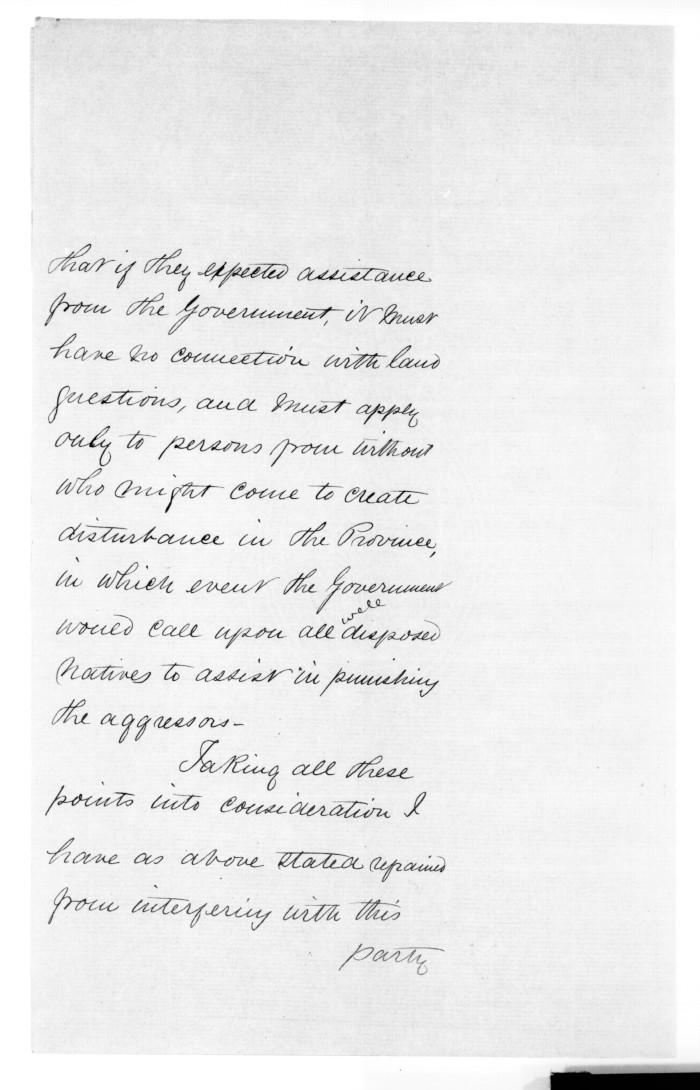 that if they expected assistance
from the Government, it must
have no connection with land
questions, and must apply
only to persons from without
who might come to create
disturbance in the Province,
in which event the Government
would call upon all well disposed
Natives to assist in punishing
the aggressors-
Taking all these
points into consideration I
have as above stated refrained
from interfering with this
party